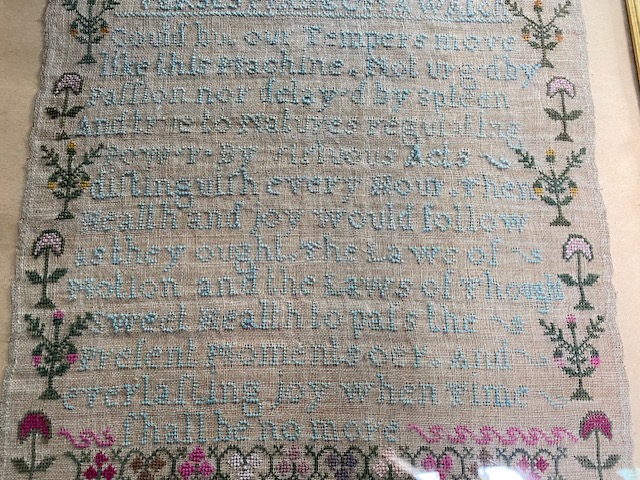 VERSES PLACED IN A WATCH
Could but our Tempers move
like this Machine, Not urg·d by
paſſion nor delay·d by spleen
And true to Natures regulating
pow·r·By virtuous Acts
diſtinguiſh every Hour, then
Health and joy would follow
as they ought. The Laws of
Motion and the Laws of Though
sweet Health to paſs the
preſent moments oer And
everlaſting joy when Time
ſhall be no more